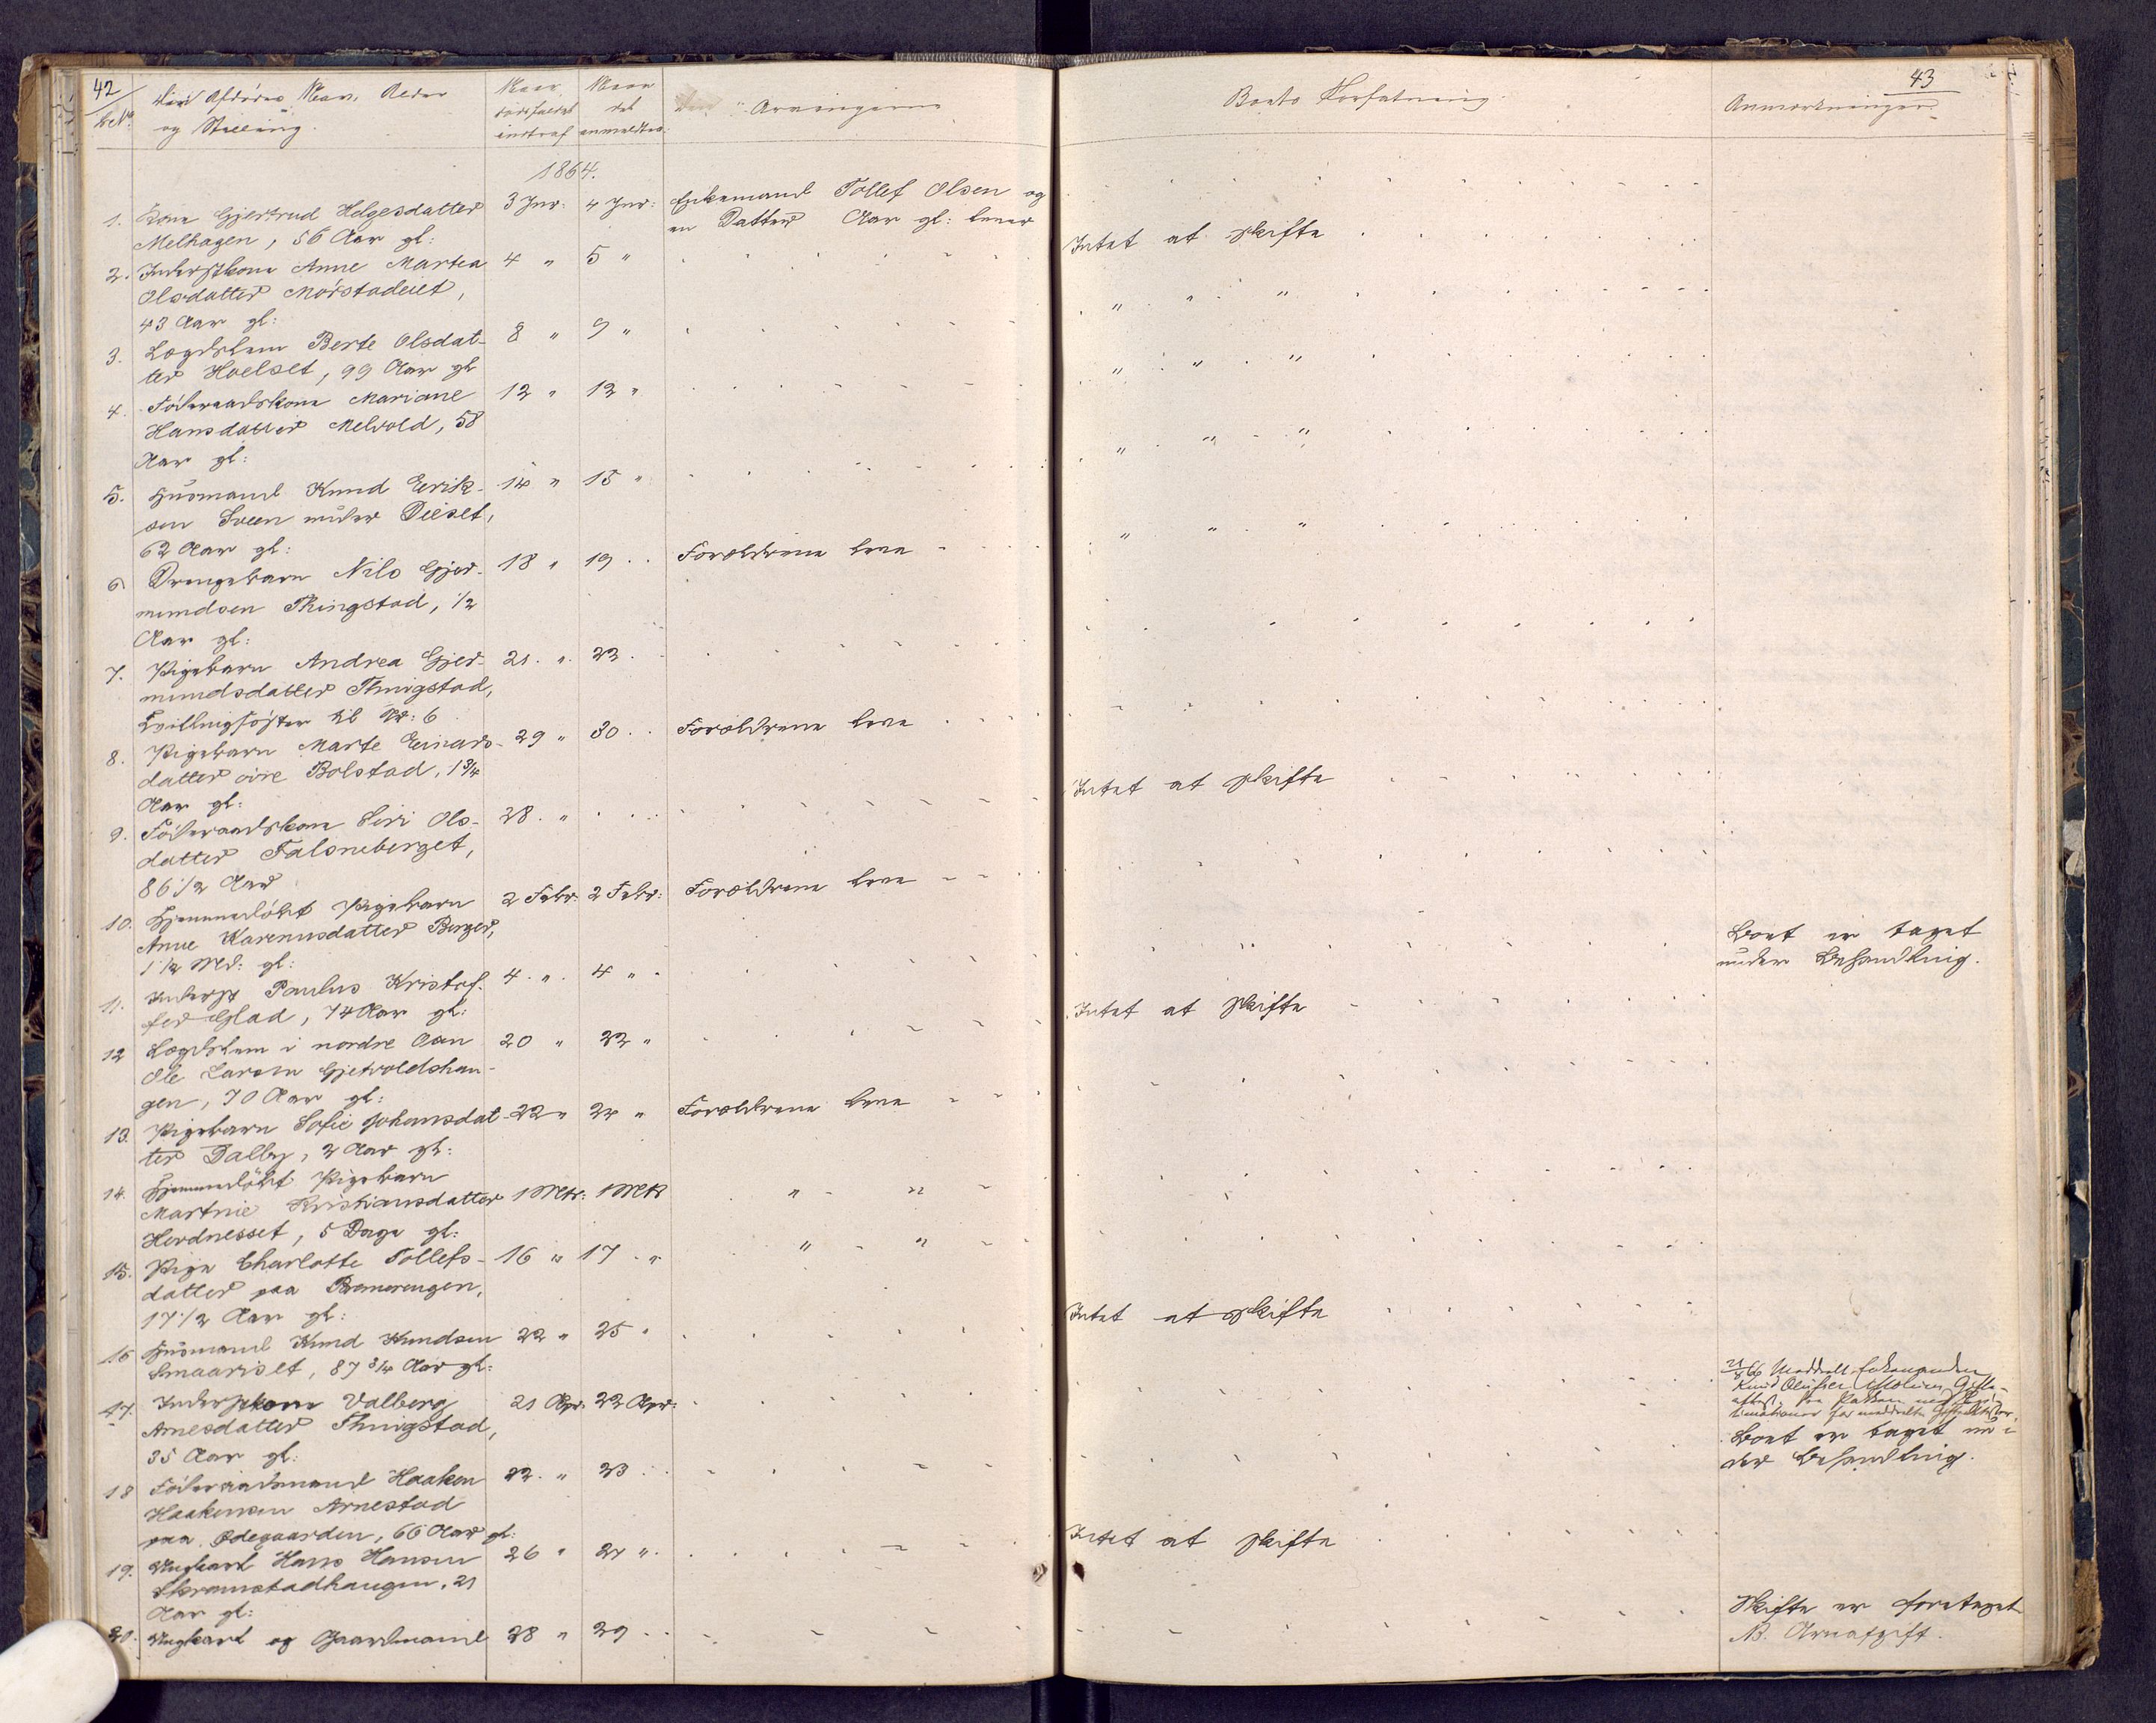 42
LbNo
den Afdødes Navn, Alder
og Stilling.
Naar
dødsfaldet
indtraf
Naar
det
anmeldtes
Arvingerne
1864.
1. Kone Gjertrud Helgesdatter
Melhagen, 56 Aar gl:
3 Jnr: 4 Jnr:
Enkemand Tollef Olsen og
en Datter Aar gl: lever
2. Inderstkone Anne Martea
Olsdatter Mørstadeiet,
43 Aar gl:
4 " 5 "
3. Lægdslem Berte Olsdat-
ter Hoelset, 99 Aar gl
8 " 9 "
4. Føderaadskone Mariane
Hansdatter Melvold, 58
Aar gl:
12 " 13 "
5. Husmand Knud Eerik-
sen Sveen under Dieset,
62 Aar gl:
14 " 15 "
6. Drengebarn Nils Gjer-
mundsen Thingstad, 1/2
Aar gl:
18 " 19 . . Forældrene leve
7. Pigebarn Andrea Gjer-
mundsdatter Thingstad,
Tvillingsøster til Nr: 6
21 . " . 23 .
8. Pigebarn Marte Einars-
datter øvre Bolstad, 1 3/4
Aar gl:
29 " 30 . . Forældrene leve
9. Føderaadskone Siri Ols-
datter Falsneberget,
86 1/2 Aar
28 . "
10. Hjemmedøbt Pigebarn
Anne Karenusdatter Berger,
1 1/2 Md: gl:
2 Febr: 2 Febr: Forældrene leve
11. Inderst Paulus Kristof-
fer Glad, 74 Aar gl:
4 . " . 4 "
12 Lægdslem i nordre Aan
Ole Larsen Gjetvoldshau-
gen, 70 Aar gl:
20 " 22 "
13. Pigebarn Sofie Johansdat-
ter Dalby, 2 Aar gl:
22 " 24 " Forældrene leve
14. Hjemmedøbt Pigebarn
Martine Kristiansdatter
Herdnesset, 5 Dage gl:
1 Mts: 1 Mts " "
15. Pige Charlotte Tollefs-
datter paa
17 1/2 Aar gl:
16 " 17 . " " "
16 Husmand Knud Knudsen
Smaariset, 87 3/4 Aar gl:
22 " 25 "
17. Inderstkone Valberg
Arnesdatter Thingstad,
35 Aar gl:
21 Apr: 22 Apr:
18 Føderaadsmand Haaken
Haakensen Arnestad
paa Ødegaarden, 66 Aar gl:
22 . " 23 .
19. Ungkarl Hans Hansen
Skramstadhaugen, 21
Aar gl:
26 " 27 " .
20. Ungkarl og Gaardmand 28 " 29
43
Boets Forfatning
Anmærkninger
Intet at skifte
" " "
" " "
" " "
" " "
Intet at skifte
Boet er taget
under Behandling.
Intet at skifte
Intet at skifte
Boet er taget un-
der Behandling.
Intet at skifte
Skifte er foretaget
NB. Arveafgift.